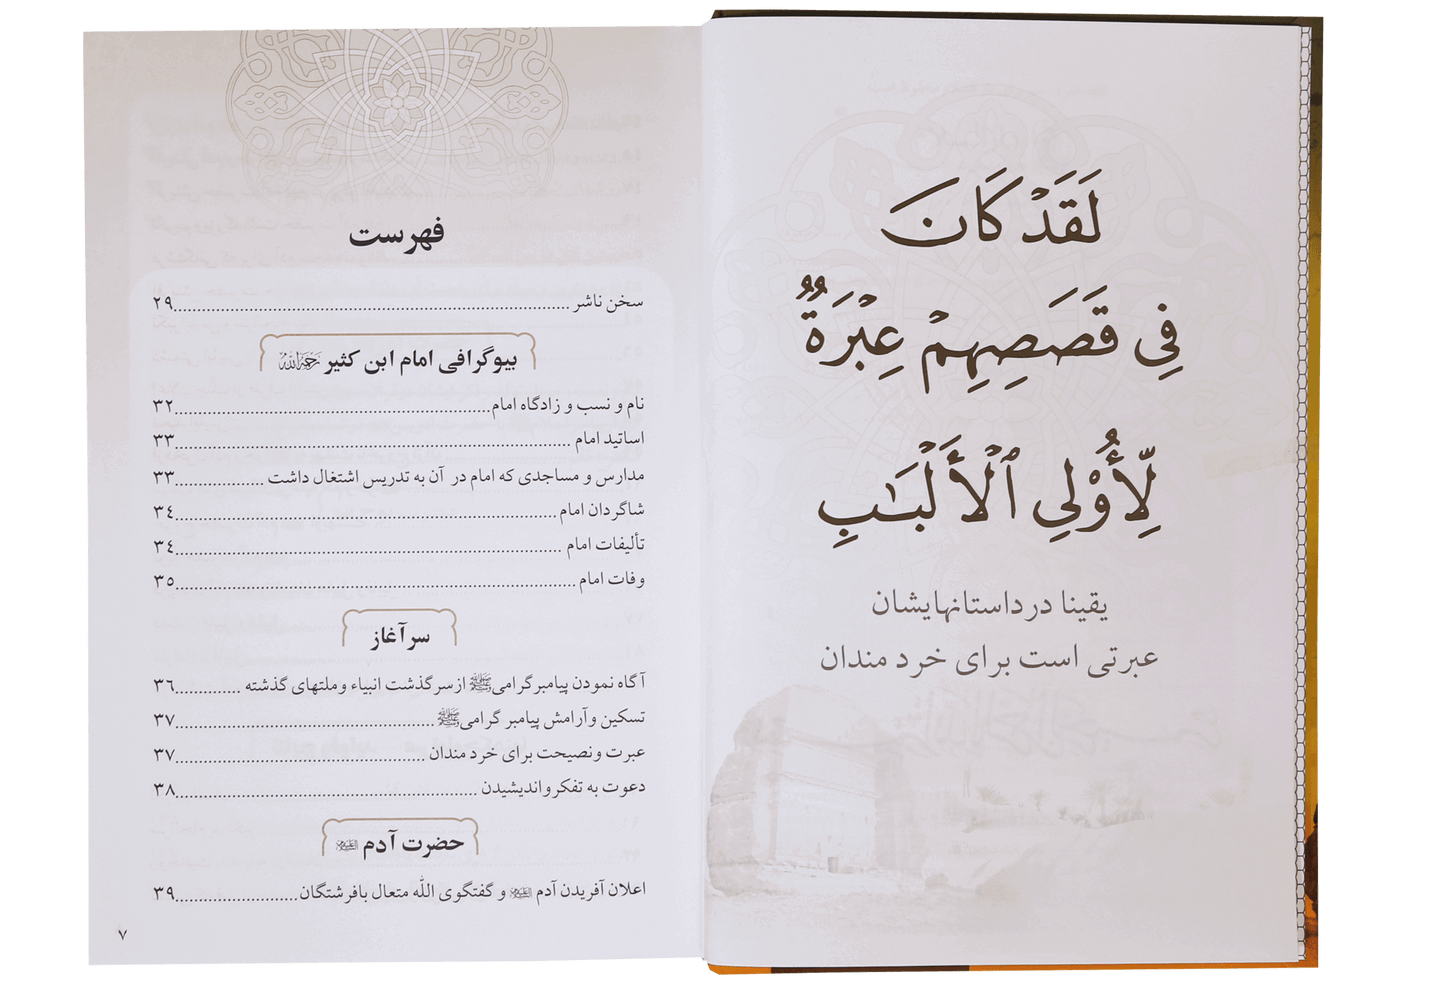 لَقَدْ كَانَ
فِي قَصَصِهِمْ عِبْرَةٌ
لِّأُوْلِي ٱلْأَلْبَٰبِ
یقینا در داستانهایشان
عبرتی است برای خرد مندان
فهرست
سخن ناشر ........ ٢٩
بیوگرافی امام ابن کثیر رَحِمَهُ ٱللَّهُ
نام و نسب و زادگاه امام ........ ٣٢
اساتید امام ........ ٣٣
مدارس و مساجدی که امام در آن به تدریس اشتغال داشت ........ ٣٣
شاگردان امام ........ ٣٤
تألیفات امام ........ ٣٤
وفات امام ........ ٣٥
سرآغاز
آگاه نمودن پیامبرگرامی ﷺ ازسرگذشت انبیاء وملتهای گذشته ........ ٣٦
تسکین وآرامش پیامبر گرامی ﷺ ........ ٣٧
عبرت ونصیحت برای خرد مندان ........ ٣٧
دعوت به تفکرواندیشیدن ........ ٣٨
حضرت آدم
اعلان آفریدن آدم و گفتگوی الله متعال بافرشتگان ........ ٣٩
٧